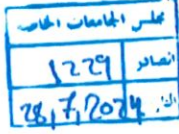 مجلس الجامعات الخاصة
الصادر 1229
28,7,2024